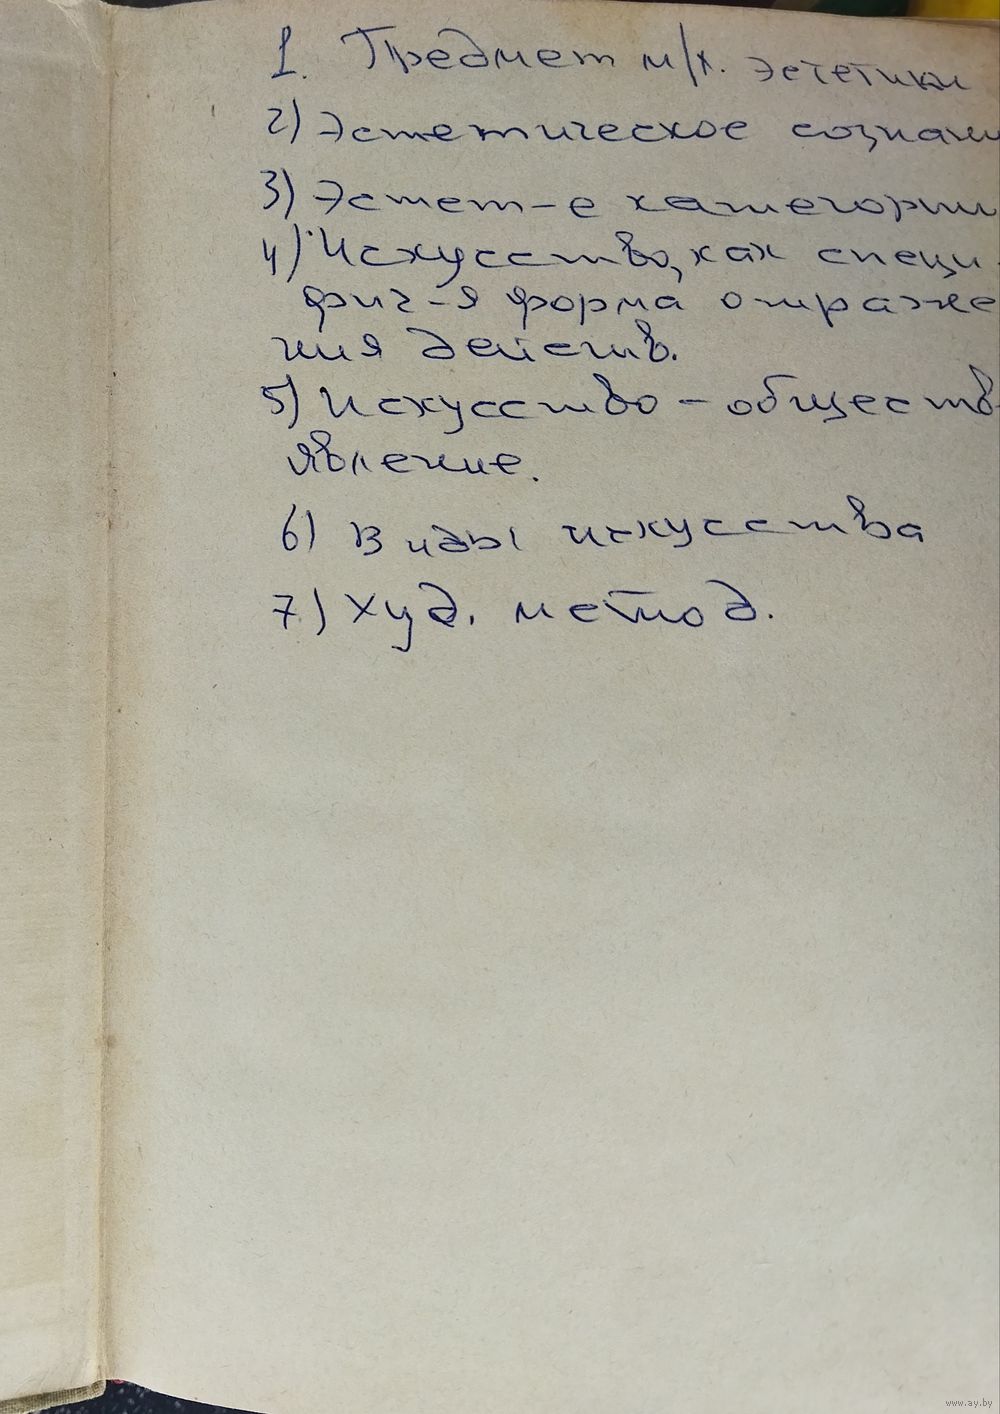 1. Предмет м/л. эстетики
2) Эстетическое сознани
3) Эстет-е категории
4) Искусство, как специ-
фич-я форма отраже
ния действ.
5) Искусство - обществ-
явление.
6) Виды искусства
7) Худ. метод.
www.ay.by